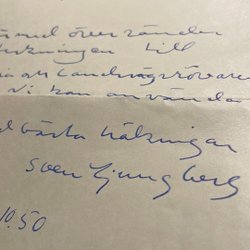 översänder
till
Landsvägsrövare
vi kan använda
bästa hälsningar
Sven Ljungberg
10.50